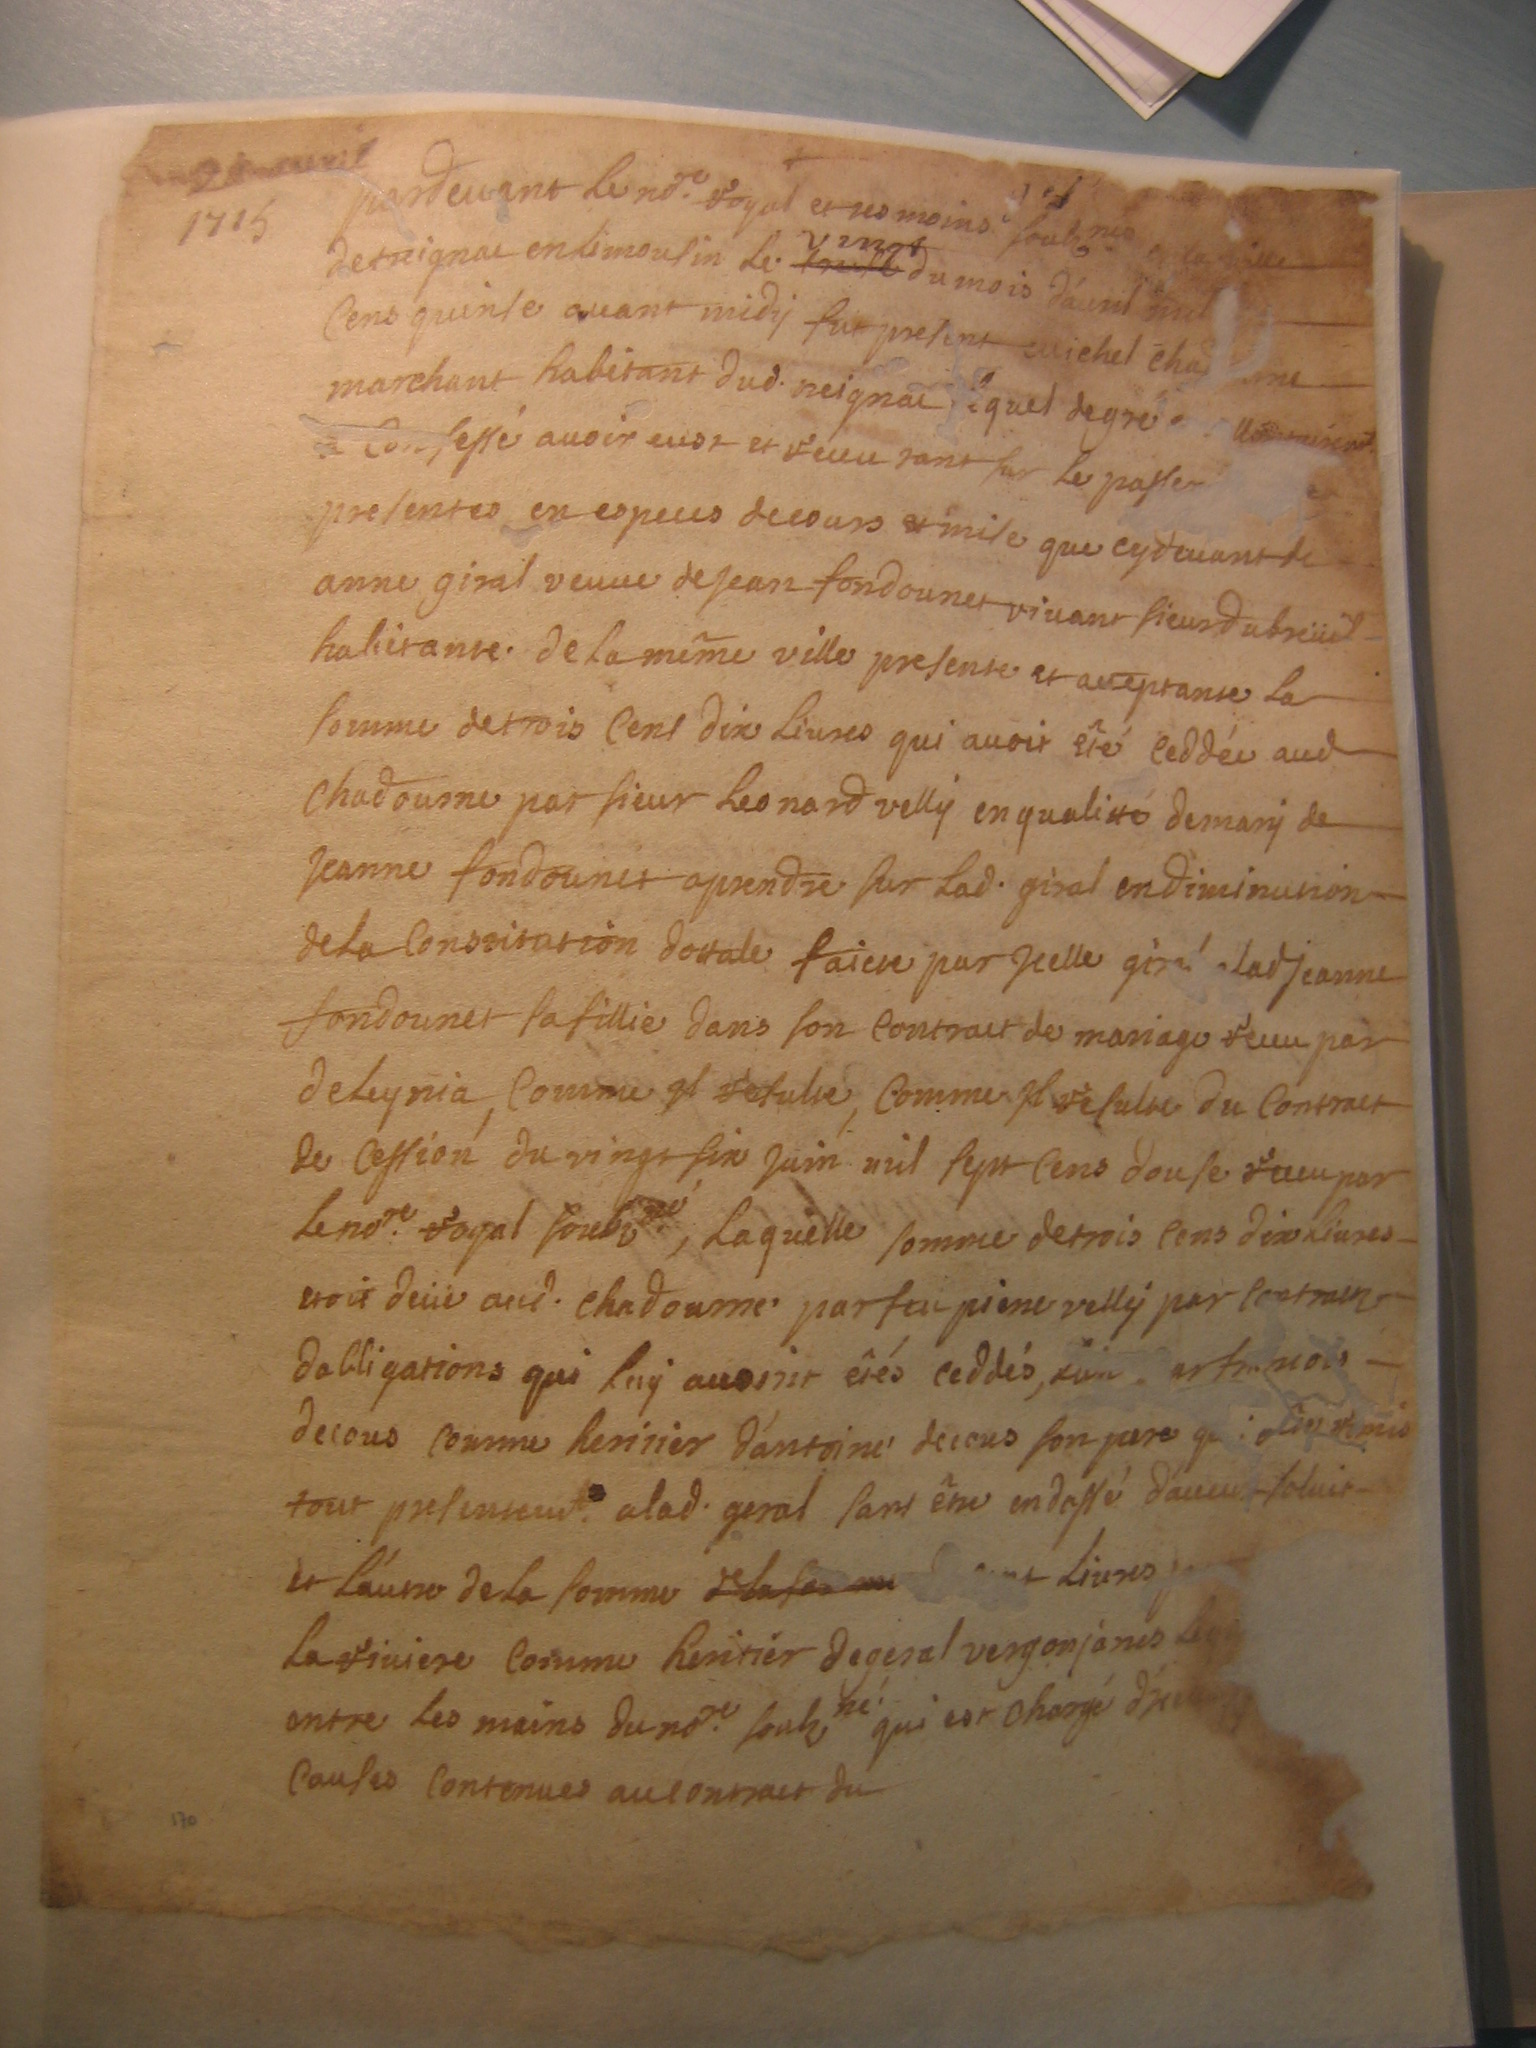 avril
1715
pardevant le no.re royal et tesmoins soubz.nés en la ville
de treignac en limousin le vingt du mois d'auril mil
cens quinse auant midy fut present michel chadourne
marchant habitant dud. treignac lequel de gré
a Confessé auoir eust et receu tant sur le passer
presentes en especes de cours et mise que cydeuant de
anne giral veuue de jean fondounet viuant sieur dubreüil
habitante. de la même ville presente et aceptante la
somme de trois Cens dix Liures qui auoit êté ceddée aud
chadourne par sieur Leonard velly en qualitté de mary de
Jeanne fondounet aprendre sur Lad. giral en diminution
de la Constitution dottale faicte par jcelle giral a lad jeanne
fondounet sa fillie dans son Contract de mariage receu par
deleynia, Comme jl resulte, Comme jl resulte du Contract
de Cession du vingt six juin mil sept Cens douse receu par
le no.re royal soubz.né, Laquelle somme de trois Cens dix Liures
etoit deüe aud. chadourne. par feu pierre velly par contraix
dobligations qui luy auoint êtés ceddés, par francois
decous comme heritier d'antoine decous son pere qui remis
tout presentem.t a lad. geral sans être endossé d'aucun soluit
et l'autre de la somme de la somme Liures
La riuiere Comme heritier de geral vergonjanes
entre les mains du no.re soubz.né qui est chargé
Causes Contenues au Contract du
170